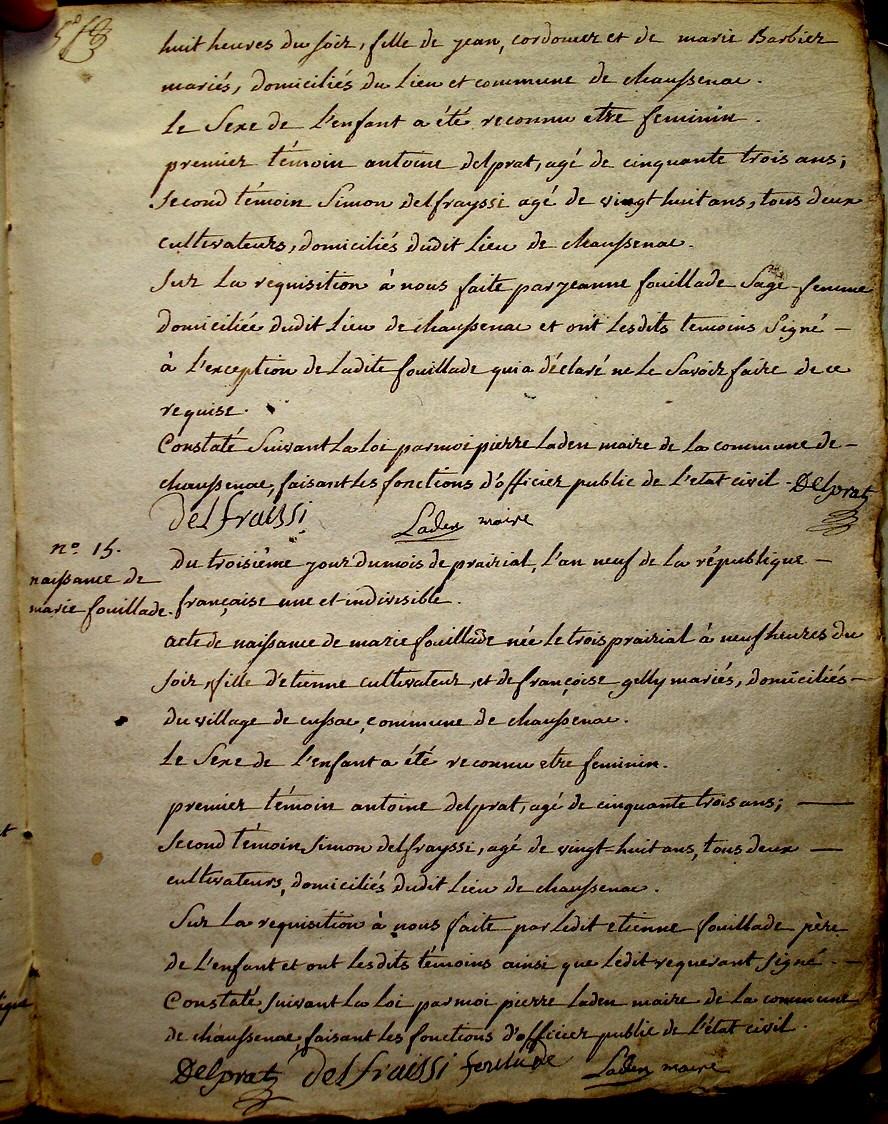 huit heures du soir, fille de jean, cordonier et de marie Barbier
mariés, domiciliés du lieu et commune de chaussenac.
le Sexe de l'enfant a été reconnu etre feminin.
premier témoin antoine delprat, agé de cinquante trois ans;
Second témoin Simon delfrayssi agé de vingt huit ans, tous deux
cultivateurs, domiciliés dudit lieu de chaussenac.
Sur la requisition à nous faite par jeanne fouillade Sage-femme
domiciliée dudit lieu de chaussenac et ont lesdits temoins Signé —
à l'exception de ladite fouillade qui a déclaré ne le Savoir faire de ce
requise.
Constaté Suivant la loi par moi pierre laden maire de la commune de —
chaussenac, faisant les fonctions d'officier public de l'etat civil - Delprat
delfraissi Laden maire
n.º 15.
naissance de
marie fouillade.
du troisième jour du mois de prairial, l'an neuf de la république —
française une et indivisible.
acte de naissance de marie fouillade née le trois prairial à neuf heures du
soir, fille d'etienne cultivateur, et de françoise gelly mariés, domiciliés —
du village de cussac, commune de chaussenac.
le Sexe de l'enfant a été reconnu etre feminin.
premier témoin antoine delprat, agé de cinquante trois ans; —
Second témoin Simon delfrayssi, agé de vingt-huit ans, tous deux —
cultivateurs, domiciliés dudit lieu de chaussenac.
Sur la requisition à nous faite par ledit etienne fouillade père
de l'enfant et ont lesdits témoins ainsi que ledit requerant signé. —
Constaté Suivant la loi par moi pierre laden maire de la commune
de chaussenac, faisant les fonctions d'officier public de l'état civil.
Delprat delfraissi Laden maire